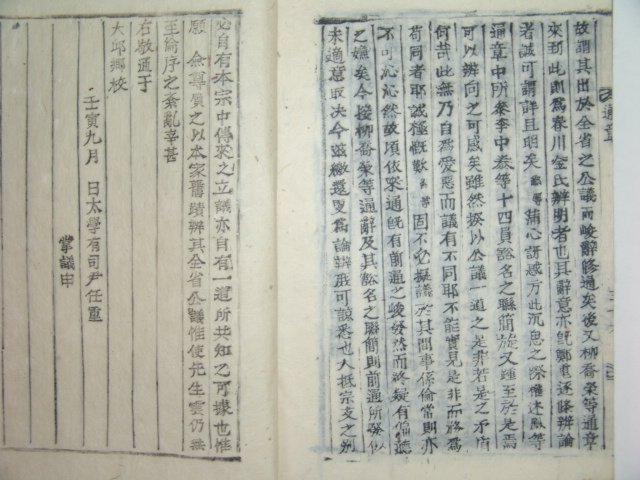 故謂其出於全省之公議而峻辭修通矣後又柳喬榮等通章
來到此則爲春川金氏辨明者也其辭意亦旣鄭重逐條辨論
者誠可謂詳且明矣 鄙等 猜心訝惑方此沉思之際權述鳳等
通章中所參李中泰等十四員訟名之聯簡旋又踵至於是焉
可以辨向之可惑矣雖然揆以公議一道之是非若是之矛盾
何哉此無乃自爲愛惡而議有不同耶不能實見是非而務爲
苟同者耶誠極慨歎 鄙等 固不必擬議於其間事係倫常則亦
不可泯泯然故頃依衆通旣有前通之峻發然而終疑有偏聽
之嫌矣今接柳喬榮等通辭及其訟名之聯簡則前通所發似
未適意取决今玆繳還更爲論辨庶可諒悉也大抵宗支之別
必自有本宗中傳來之立議亦自有一道所共知之可據也惟
願 僉尊質之以本家舊蹟辨其全省公議惟使先生雲仍無
至倫序之紊亂幸甚
右敬通于
大邱鄕校
壬寅九月 日太學有司尹任重
掌議申